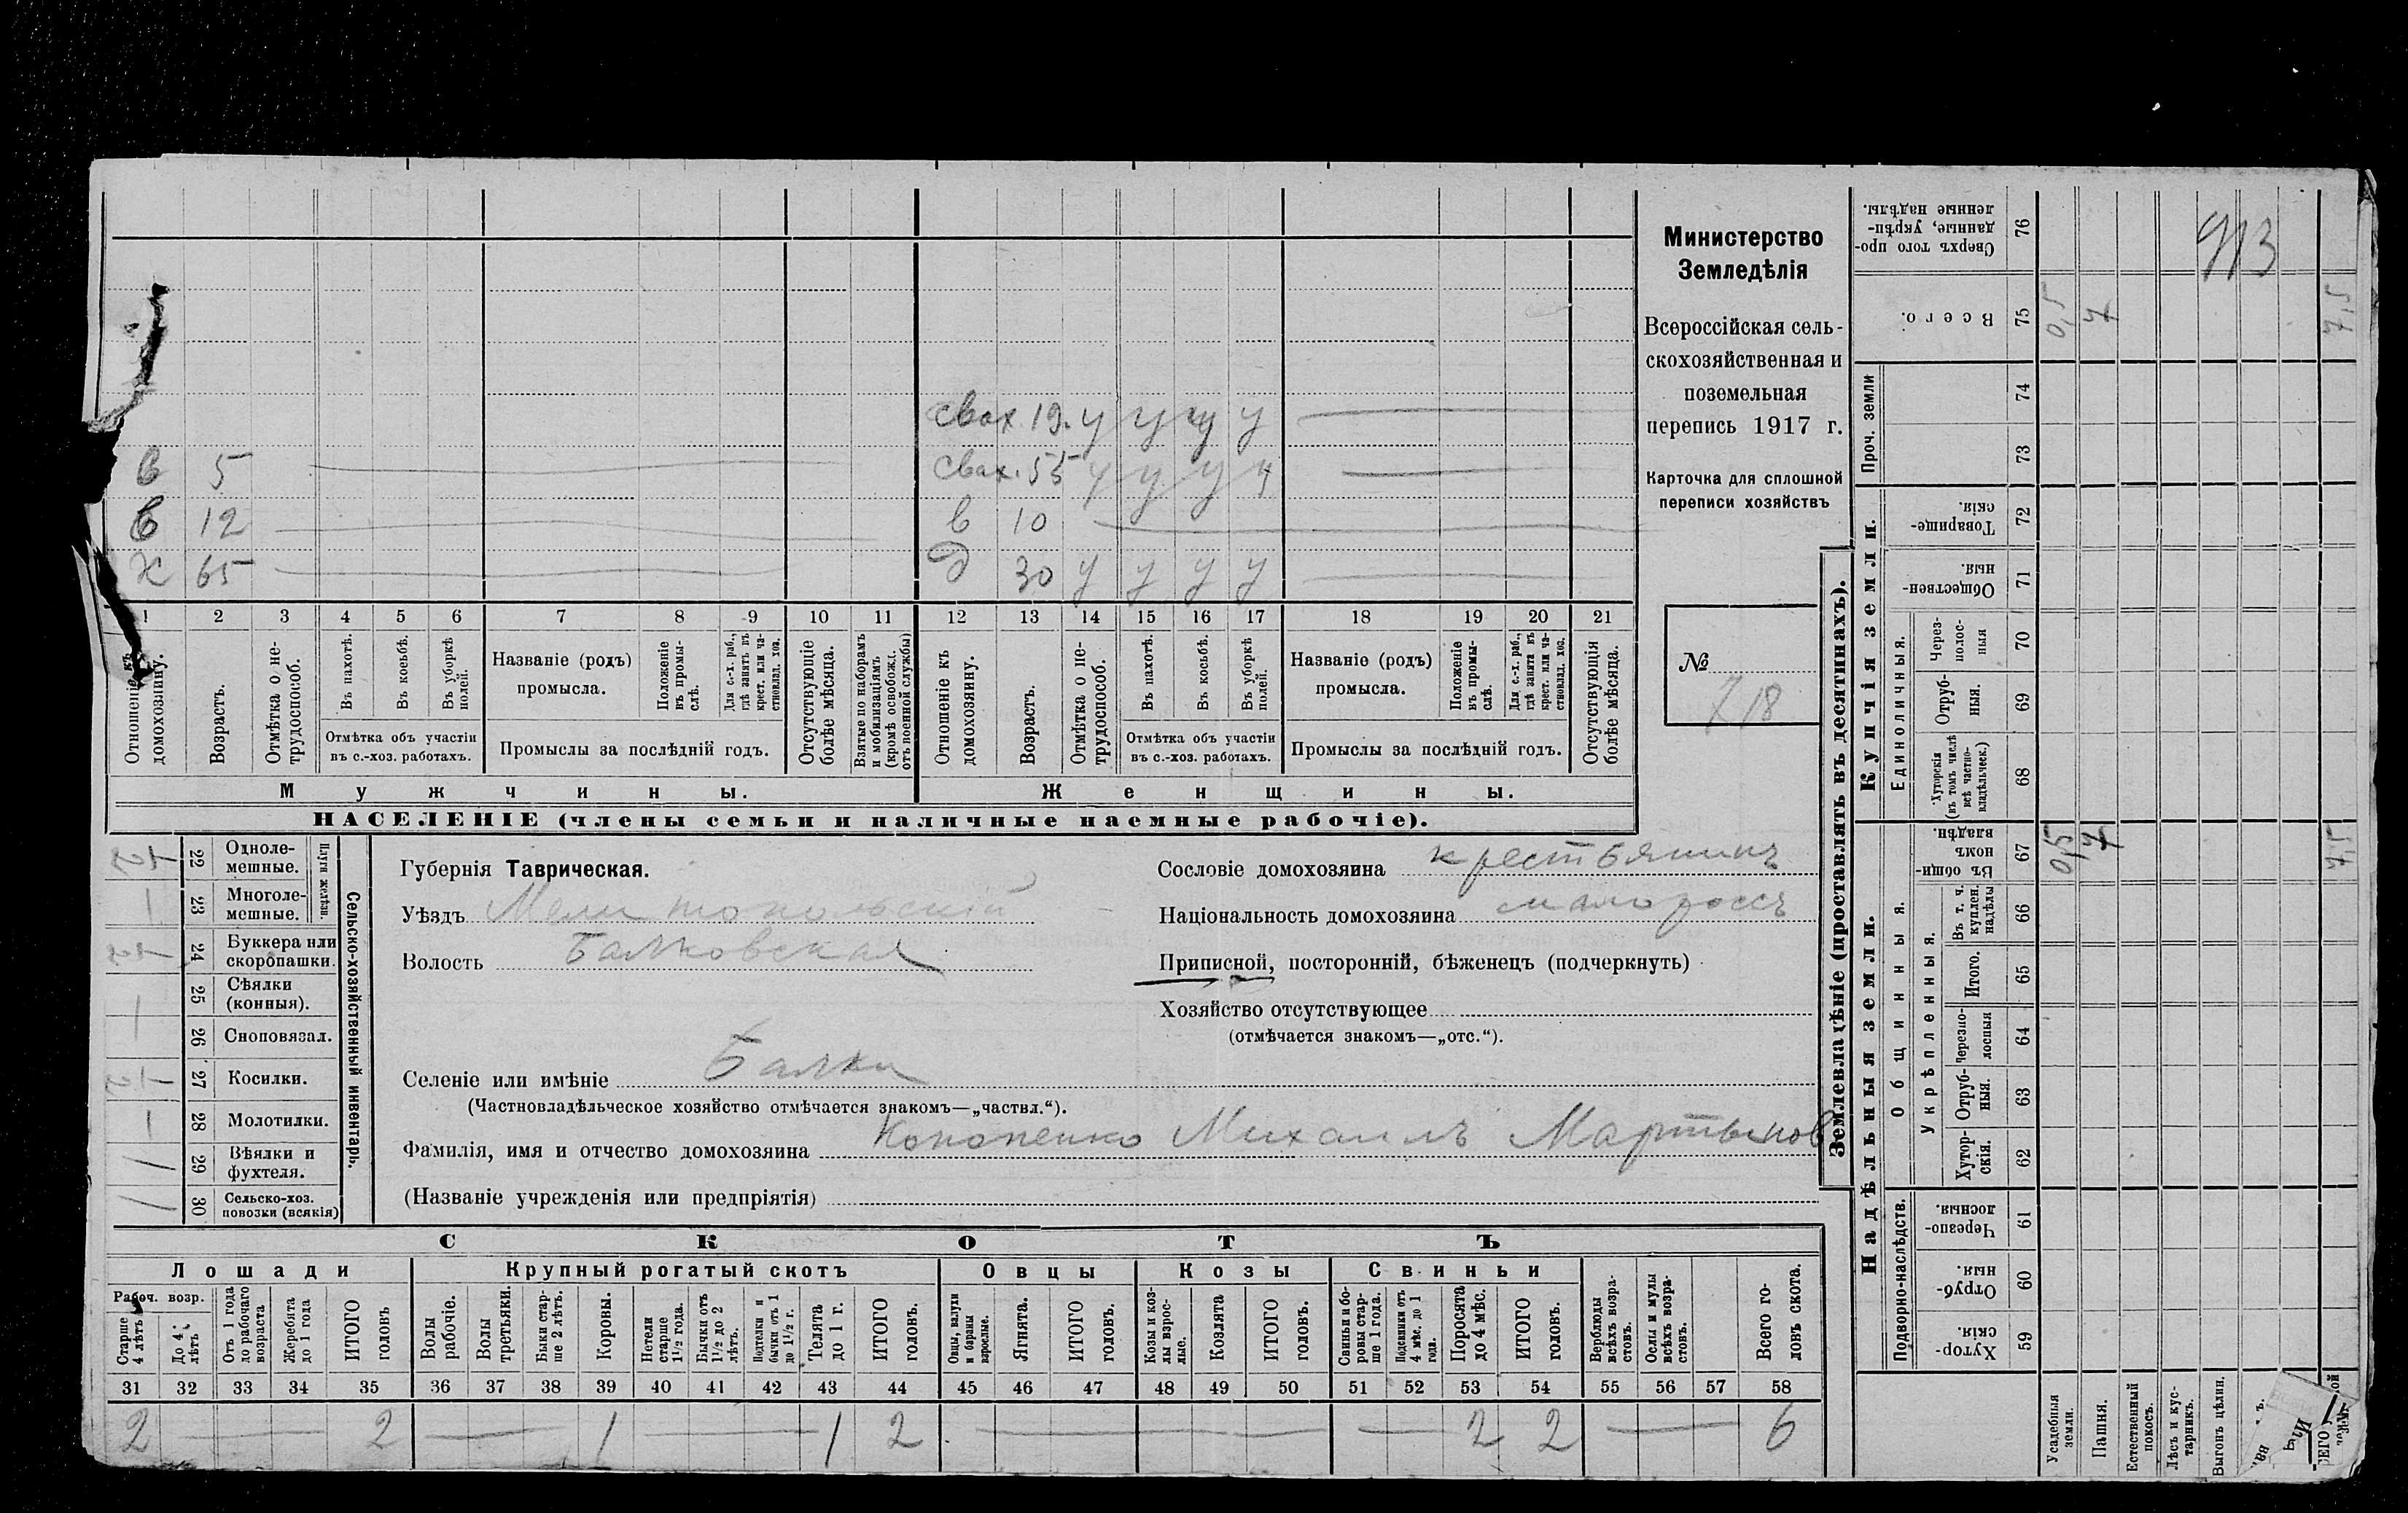 Министерство
Земледѣлія
Всероссійская сель-
скохозяйственная и
поземельная
перепись 1917 г.
Карточка для сплошной
переписи хозяйствъ
№
718
свах 19. у у у у
в 5
свах. 55 у у у у
в 12
в 10
х 65
д 30 у у у у
1 2 3 4 5 6 7 8 9 10 11 12 13 14 15 16 17 18 19 20 21
Отношеніе къ домохозяину.
Возрастъ.
Отмѣтка о не-трудоспособ.
Въ пахотѣ.
Въ косьбѣ.
Въ уборкѣ полей.
Отмѣтка объ участіи
въ с.-хоз. работахъ.
Названіе (родъ)
промысла.
Положеніе въ промы-слѣ.
Для с.-х. раб., гдѣ занятъ въ крест. или ча-стновлад. хоз.
Промыслы за послѣдній годъ.
Отсутствующіе болѣе мѣсяца.
Взятые по наборамъ и мобилизаціямъ (кромѣ освобожд. отъ военной службы)
Отношеніе къ домохозяину.
Возрастъ.
Отмѣтка о не-трудоспособ.
Въ пахотѣ.
Въ косьбѣ.
Въ уборкѣ полей.
Отмѣтка объ участіи
въ с.-хоз. работахъ.
Названіе (родъ)
промысла.
Положеніе въ промы-слѣ.
Для с.-х. раб., гдѣ занята въ крест. или ча-стновлад. хоз.
Промыслы за послѣдній годъ.
Отсутствующія болѣе мѣсяца.
Мужчины.
Женщины.
НАСЕЛЕНІЕ (члены семьи и наличные наемные рабочіе).
22 Однолемешные.
23 Многолемешные.
Плуги желѣзн.
24 Буккера или скоропашки.
25 Сѣялки (конныя).
26 Сноповязал.
27 Косилки.
28 Молотилки.
29 Вѣялки и фухтеля.
30 Сельско-хоз. повозки (всякія)
Сельско-хозяйственный инвентарь.
Губернія Таврическая.
Уѣздъ Мелитопольскій
Волость Балковская
Селеніе или имѣніе Балки
(Частновладѣльческое хозяйство отмѣчается знакомъ—„частвл.“).
Фамилія, имя и отчество домохозяина Кононенко Михаилъ Мартынов
(Названіе учрежденія или предпріятія)
Сословіе домохозяина крестьянинъ
Національность домохозяина малороссъ
Приписной, посторонній, бѣженецъ (подчеркнуть)
Хозяйство отсутствующее
(отмѣчается знакомъ—„отс.“).
СКОТЪ
Лошади
Крупный рогатый скотъ
Овцы
Козы
Свиньи
Рабоч. возр.
Старше 4 лѣтъ
До 4 лѣтъ
Отъ 1 года до рабочаго возраста
Жеребята до 1 года
ИТОГО головъ
Волы рабочіе.
Волы третьяки.
Быки стар-ше 2 лѣтъ.
Коровы.
Нетели старше 1½ года.
Бычки отъ 1½ до 2 лѣтъ.
Подтелки и бычки отъ 1 до 1½ г.
Телята до 1 г.
ИТОГО головъ.
Овцы, валухи и бараны взрослые.
Ягнята.
ИТОГО головъ.
Козы и коз-лы взрос-лые.
Козлята
ИТОГО головъ.
Свиньи и бо-ровы стар-ше 1 года.
Подсвинки отъ 4 мѣс. до 1 года.
Поросята до 4 мѣс.
ИТОГО головъ.
Верблюды всѣхъ возра-стовъ.
Ослы и мулы всѣхъ возра-стовъ.
Всего го-ловъ скота.
31 32 33 34 35 36 37 38 39 40 41 42 43 44 45 46 47 48 49 50 51 52 53 54 55 56 57 58
2 2 1 1 2 2 2 6
Землевладѣніе (проставлять въ десятинахъ).
Надѣльныя земли.
Купчія земли.
Проч. земли
Подворно-наслѣдств.
Общинныя.
Укрѣпленныя.
Единоличныя.
59 Хутор-скія.
60 Отруб-ныя.
61 Черезпо-лосныя.
62 Хутор-скія.
63 Отруб-ныя.
64 Черезпо-лосныя
65 Итого.
66 Въ т. ч. куплен. надѣлы
67 Въ общин-номъ владѣн.
68 Хуторскія (въ томъ числѣ всѣ частно-владѣльческ.)
69 Отруб-ныя.
70 Через-полос-ныя
71 Обществен-ныя.
72 Товарище-скія.
73
74
75 Всего.
76 Сверхъ того про-данные, укрѣп-ленные надѣлы.
Усадебныя земли.
Пашня.
Естественный покосъ.
Лѣсъ и кус-тарникъ.
Выгонъ цѣлин.
0,5 7 7,5
0,5 7 7,5
913